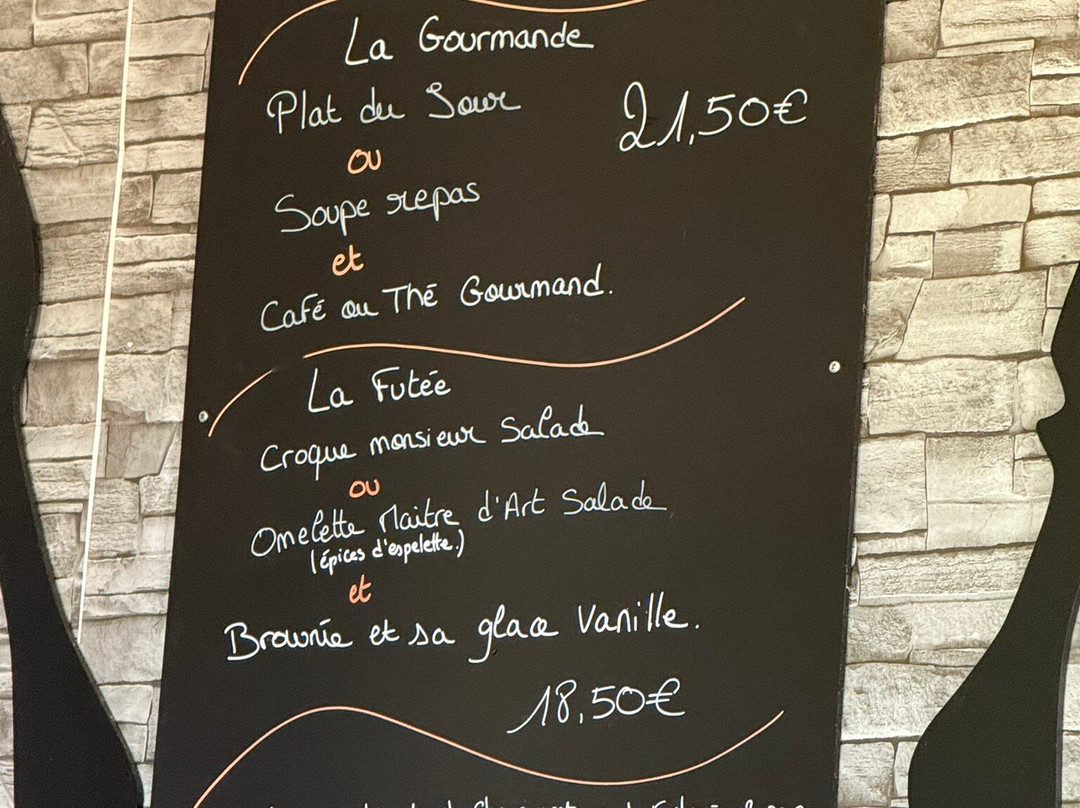 La Gourmande
Plat du Jour
21,50€
ou
Soupe repas
et
Café ou Thé Gourmand.
La Futée
Croque monsieur Salade
ou
Omelette Maitre d'Art Salade
(épices d'espelette.)
et
Brownie et sa glace Vanille.
18,50€